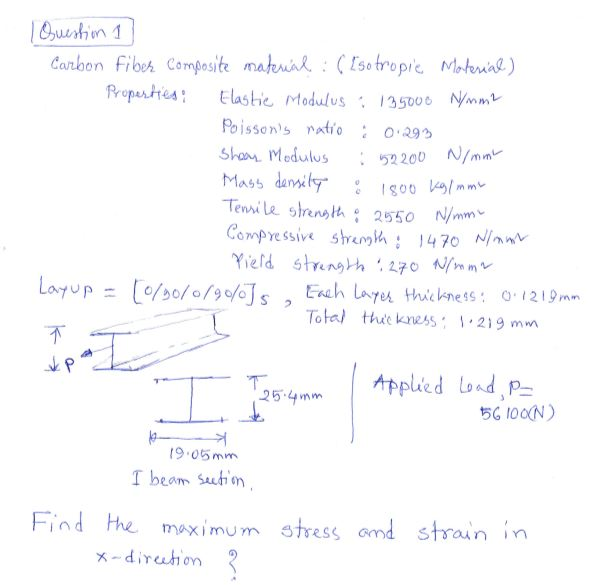 Question 1
Carbon Fiber Composite material : (Isotropic Material)
Properties : Elastic Modulus : 135000 N/mm²
Poisson's ratio : 0.293
Shear Modulus : 52200 N/mm²
Mass density : 1800 kg/mm²
Tensile strength : 2550 N/mm²
Compressive strength : 1470 N/mm²
Yield strength : 270 N/mm²
Layup = [0/90/0/90/0]s , Each Layer thickness : 0.1219mm
Total thickness : 1.219 mm
P
25.4mm
Applied Load, P=
56100(N)
19.05mm
I beam section.
Find the maximum stress and strain in
x-direction ?